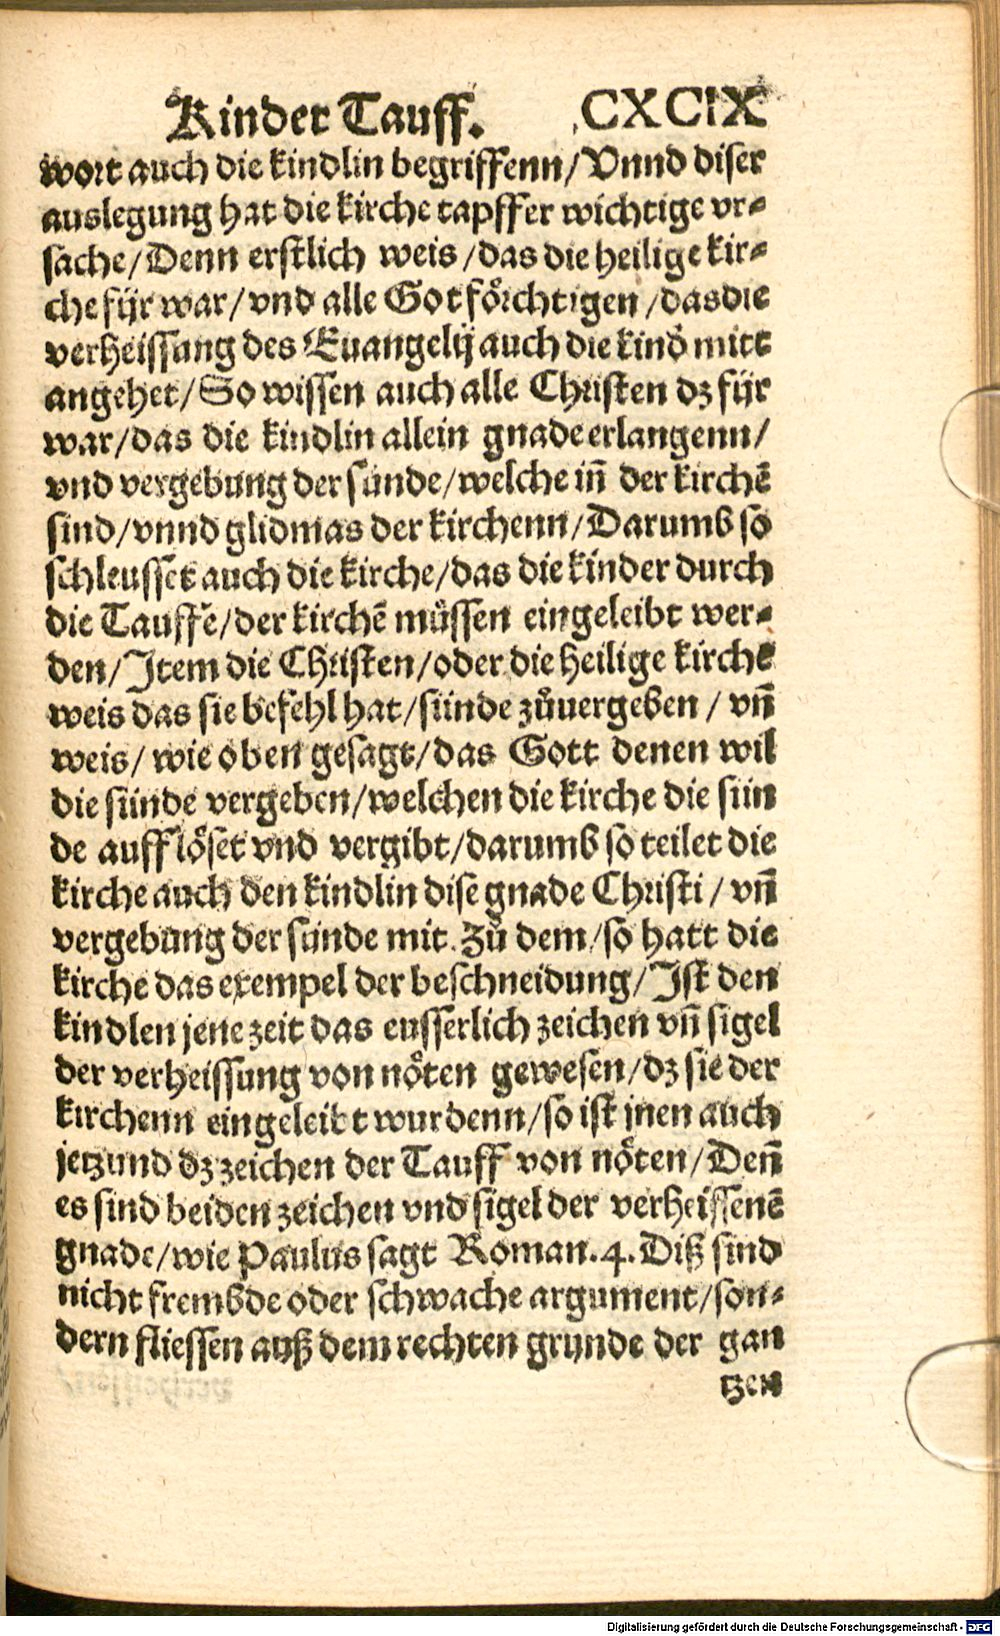 Kinder Tauff. CXCIX
wort auch die kindlin begriffenn/ Vnnd diser
auslegung hat die kirche tapffer wichtige vr-
sache/ Denn erstlich weis/ das die heilige kir-
che fÿr war/ vnd alle Gotförchtigen/ das die
verheissung des Euangelij auch die kind mitt
angehet/ So wissen auch alle Christen dz fÿr
war/ das die kindlin allein gnade erlangenn/
vnd vergebung der sünde/ welche iñ der kirchẽ
sind/ vnnd glidmas der kirchenn/ Darumb so
schleusset auch die kirche/ das die kinder durch
die Tauffe/ der kirchẽ müssen eingeleibt wer-
den/ Item die Christen/ oder die heilige kirche
weis das sie befehl hat/ sünde zůuergeben/ vñ
weis/ wie oben gesagt/ das Gott denen wil
die sünde vergeben/ welchen die kirche die sün
de aufflöset vnd vergibt/ darumb so teilet die
kirche auch den kindlin dise gnade Christi/ vñ
vergebung der sünde mit. Zů dem/ so hatt die
kirche das exempel der beschneidung/ Ist den
kindlen jene zeit das eusserlich zeichen vñ sigel
der verheissung von nöten gewesen/ dz sie der
kirchenn eingeleibt wurdenn/ so ist jnen auch
jetzund dz zeichen der Tauff von nöten/ Deñ
es sind beiden zeichen vnd sigel der verheissenẽ
gnade/ wie Paulus sagt Roman. 4. Diß sind
nicht frembde oder schwache argument/ son-
dern fliessen auß dem rechten grunde der gan
tzen
Digitalisierung gefördert durch die Deutsche Forschungsgemeinschaft - DFG